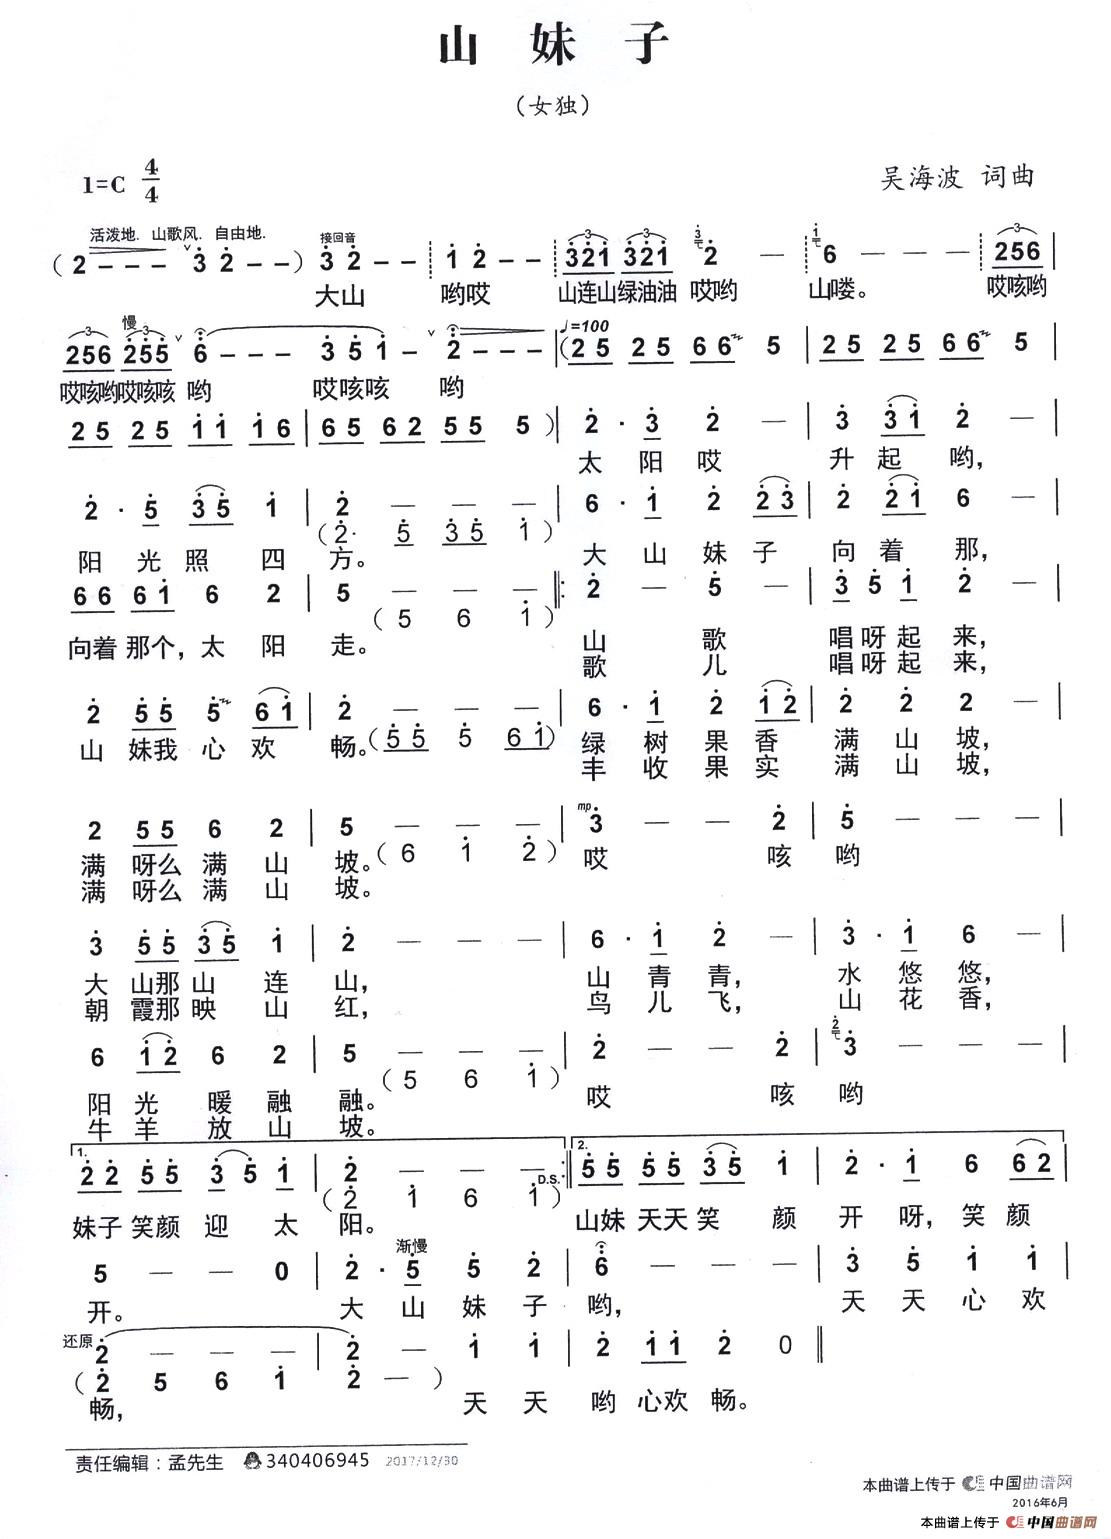 山 妹 子
（女独）
1=C 4/4
吴海波 词曲
活泼地. 山歌风. 自由地.
接回音
( 2 - - - 3 2 - - ) 3 2 - - 1 2 - - 321 321 2 — 6 — — — 256 |
大山 哟哎 山连山绿油油 哎哟 山喽。 哎咳哟
慢 ♩=100
256 255 6 - - - 3 5 1 - 2 - - - | ( 25 25 66 5 | 25 25 66 5 |
哎咳哟哎咳咳 哟 哎咳咳 哟
25 25 11 16 | 65 62 55 5 ) | 2 · 3 2 — | 3 31 2 — |
太 阳 哎 升 起 哟,
2 · 5 35 1 | 2 — — — | 6 · 1 2 23 | 2 21 6 — |
( 2· 5 35 1 )
阳 光 照 四 方。 大 山 妹 子 向 着 那,
66 61 6 2 | 5 — — — ‖: 2 — 5 — | 3 5 1 2 — |
( 5 6 1 )
向着 那个, 太 阳 走。 山 歌 唱 呀 起 来,
歌 儿 唱 呀 起 来,
2 55 5 61 | 2 — — — | 6 · 1 2 12 | 2 2 2 — |
( 55 5 61 )
山 妹我 心 欢 畅。 绿 树 果 香 满 山 坡,
丰 收 果 实 满 山 坡,
mp
2 55 6 2 | 5 — — — | 3 — — 2 | 5 — — — |
( 6 1 2 )
满 呀么 满 山 坡。 哎 咳 哟
满 呀么 满 山 坡。
3 55 35 1 | 2 — — — | 6 · 1 2 — | 3 · 1 6 — |
大 山那 山 连 山, 山 青 青, 水 悠 悠,
朝 霞那 映 山 红, 鸟 儿 飞, 山 花 香,
6 12 6 2 | 5 — — — | 2 — — 2 | 3 — — — |
( 5 6 1 )
阳 光 暖 融 融。 哎 咳 哟
牛 羊 放 山 坡。
1. 2.
22 55 3 5 1 | 2 — — — D.S. :‖ 55 55 35 1 | 2 · 1 6 62 |
( 2 1 6 1 )
妹子 笑颜 迎 太 阳。 山妹 天天 笑 颜 开 呀, 笑 颜
渐慢
5 — — 0 | 2 · 5 5 2 | 6 — — — | 3 5 1 1 |
开。 大 山 妹 子 哟, 天 天 心 欢
还原
2 — — — | 2 — 1 1 | 2 11 2 0 ‖
( 2 5 6 1 2 — )
畅, 天 天 哟 心欢 畅。
责任编辑：孟先生 340406945 2017/12/30
本曲谱上传于 中国曲谱网
2016年6月
本曲谱上传于 中国曲谱网